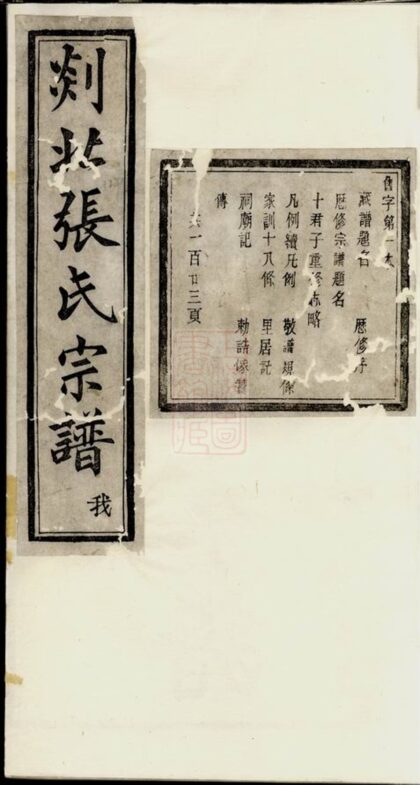 剡北張氏宗譜
我
舊字第一本
藏譜題名 歷修序
歷修宗譜題名
十君子重修志略
凡例續凡例 敬譜規條
家訓十八條 里居記
祠廟記 勅誥像贊
傳
共一百廿三頁